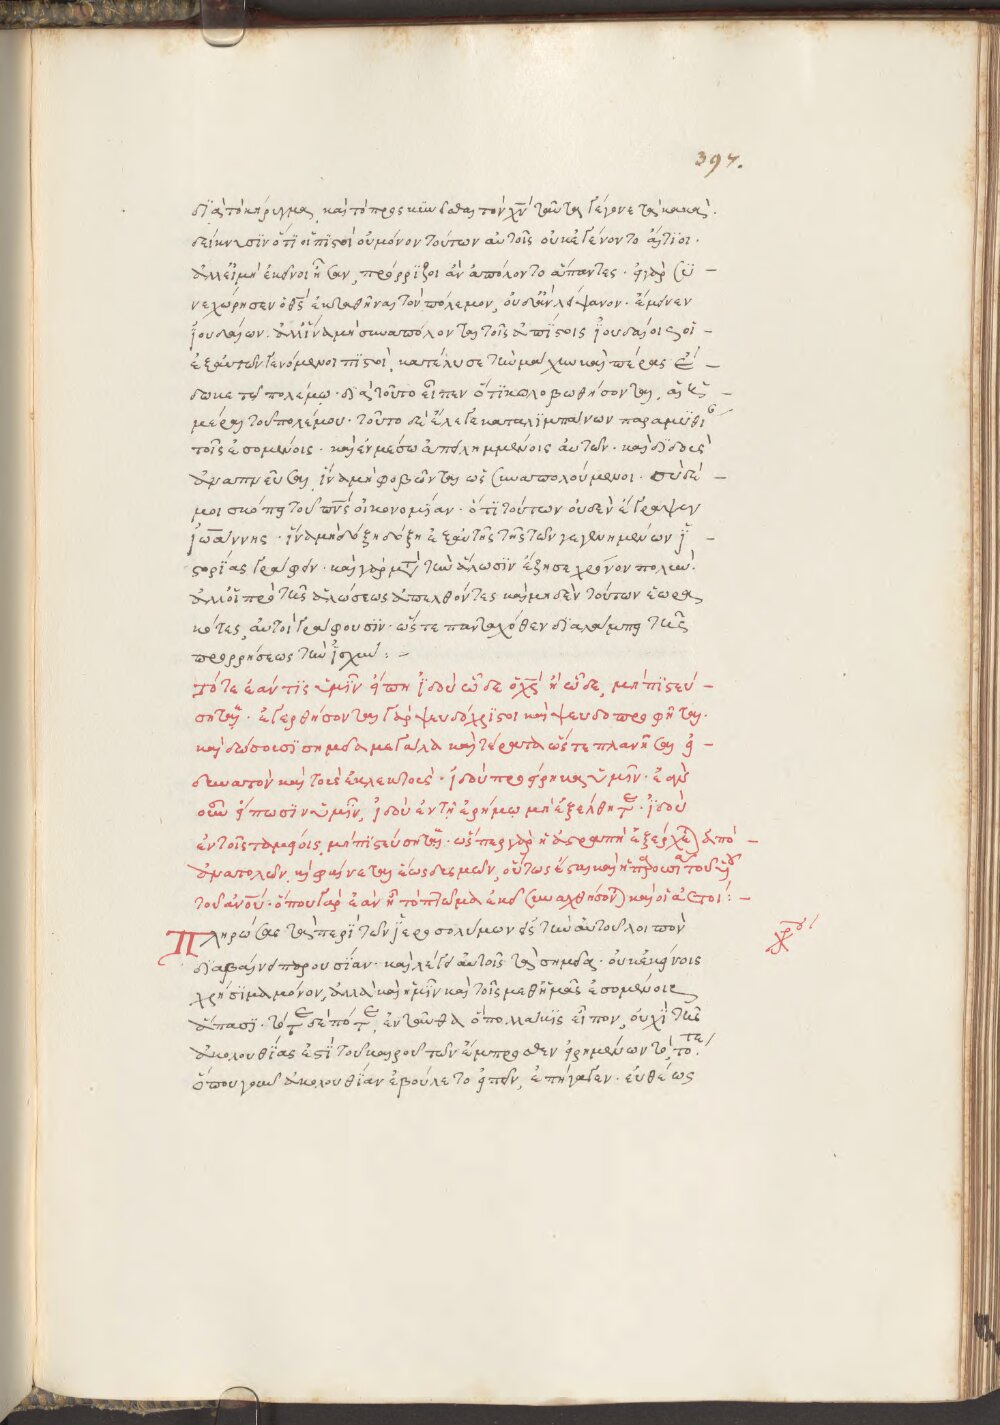 397.
διὰ τὸ κήρυγμα, καὶ τὸ προσκυνῆσαι τὸν χν̄ ταῦτα γέγονε τὰ κακὰ.
δείκνυσϊν ὅτϊ οἱ πιστοὶ οὐ μόνον τούτων αὐτοῖς οὐκ ἐγένοντο αἴτϊοι.
ἀλλ' εἰ μὴ ἐκεῖνοι ἦσαν, πρόρριζοι ἂν ἀπόλοντο ἅπαντες. εἰ γὰρ συ
νεχώρησεν ὁ θς̄ ἐκταθῆναι τὸν πόλεμον, οὐδ' ἂν λείψανον ἔμεινεν
ἰουδαίων. ἀλλ' ἵνα μὴ συναπόλονται τοῖς ἀπίστοις ἰουδαίοις οἱ
ἐξ αὐτῶν γενόμενοι πιστοὶ, κατέλυσε τὴν μάχην καὶ πέρας ἔ
δωκε τῷ πολέμῳ. διὰ τοῦτο εἶπεν ὅτϊ κολοβωθήσονται, αἱ ἡ
μέραι τοῦ πολέμου. τοῦτο δὲ ἔλεγε καταλϊμπάνων παραμυθί
τοῖς ἑσομένοις. καὶ ἐν μέσω ἀπολημμένοις αὐτῶν. καὶ διδοὺς
ἀναπνεῦσαι, ἵνα μὴ φοβῶνται ὡς συναπολούμενοι. σὺ δέ
μοι σκόπει τοῦ πνς̄ οἰκονομίαν. ὅτϊ τούτων οὐδὲν ἔγραψεν
ἰωάννης. ἵνα μὴ δόξη δόξη ἐξ αὐτῆς τῆς τῶν γεγενημένων ἱ
στορίας γράφειν. καὶ γὰρ μετὰ τὴν ἅλωσϊν ἔζησε χρόνον πολύν.
ἀλλ' οἱ πρὸ τῆς ἁλώσεως ἀπελθόντες καὶ μηδὲν τούτων ἑωρα
κότες, αὐτοὶ γράφουσϊν. ὥστε πανταχόθεν διαλάμπειν τῆς
προρρήσεως τὴν ἰσχύν:-
Τότε ἐάν τϊς ὑμῖν εἴπη ἰδοὺ ὧδε ὁ χς̄ ἢ ὧδε, μὴ πϊστεύ
σητε. ἐγερθήσονται γὰρ ψευδόχριστοι καὶ ψευδοπροφῆται.
καὶ δώσουσϊ σημεῖα μεγάλα καὶ τέρατα ὥστε πλανῆσαι εἰ
δυνατὸν καὶ τοὺς ἐκλεκτούς. ἰδοὺ προείρηκα ὑμῖν. ἐὰν
οὖν εἴπωσϊν ὑμῖν, ἰδοὺ ἐν τῇ ἐρήμῳ μὴ ἐξέλθητε. ἰδοὺ
ἐν τοῖς ταμείοις, μὴ πϊστεύσητε. ὥσπερ γὰρ ἡ ἀστραπὴ ἐξέρχεται ἀπὸ
ἀνατολῶν, καὶ φαίνεται ἕως δυσμῶν, οὕτως ἔσται καὶ ἡ παρουσία τοῦ υἱοῦ
τοῦ ἀνο̄υ. ὅπου γὰρ ἐὰν ἦ τὸ πτῶμα ἐκεῖ συναχθήσονται καὶ οἱ ἀετοί:-
Πληρώσας τὰ περὶ τῶν ἱεροσολύμων εἰς τὴν αὐτοῦ λοιπὸν
διαβαίνει παρουσίαν. καὶ λέγει αὐτοῖς τὰ σημεῖα. οὐκ ἐκείνοις
χρήσϊμα μόνον, ἀλλὰ καὶ ἡμῖν καὶ τοῖς μεθ' ἡμᾶς ἐσομένοις
ἅπασϊ. τότε δὲ πότε, ἐνταῦθα ὃ πολλάκϊς εἶπον, οὐχὶ τῆς
ἀκολουθίας ἐστὶ τοῦ καιροῦ τῶν ἔμπροσθεν εἰρημένων τὸ, τότε.
ὅπου γοῦν ἀκολουθίαν ἐβούλετο εἰπεῖν, ἐπήγαγεν. εὐθέως